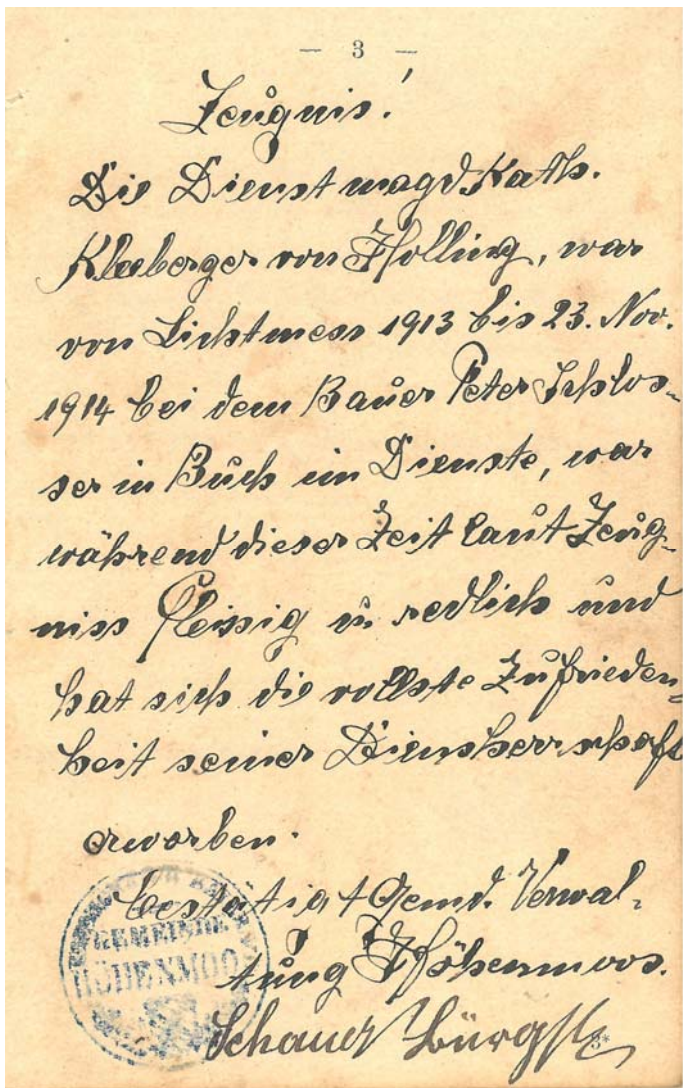 — 3 —
Zeugnis!
Die Dienstmagd Kath.
Kleeberger von Holling, war
von Lichtmess 1913 bis 23. Nov.
1914 bei dem Bauer Peter Schlos-
ser in Buch im Dienste, war
während dieser Zeit laut Zeug-
niss fleissig u. redlich und
hat sich die vollste Zufrieden-
heit seiner Diensherrschaft
erworben.
bestätigt Gemd. Verwal-
GEMEINDE
HÖHENMOOS
tung Höhenmoos.
Schauer Bürgst
3*